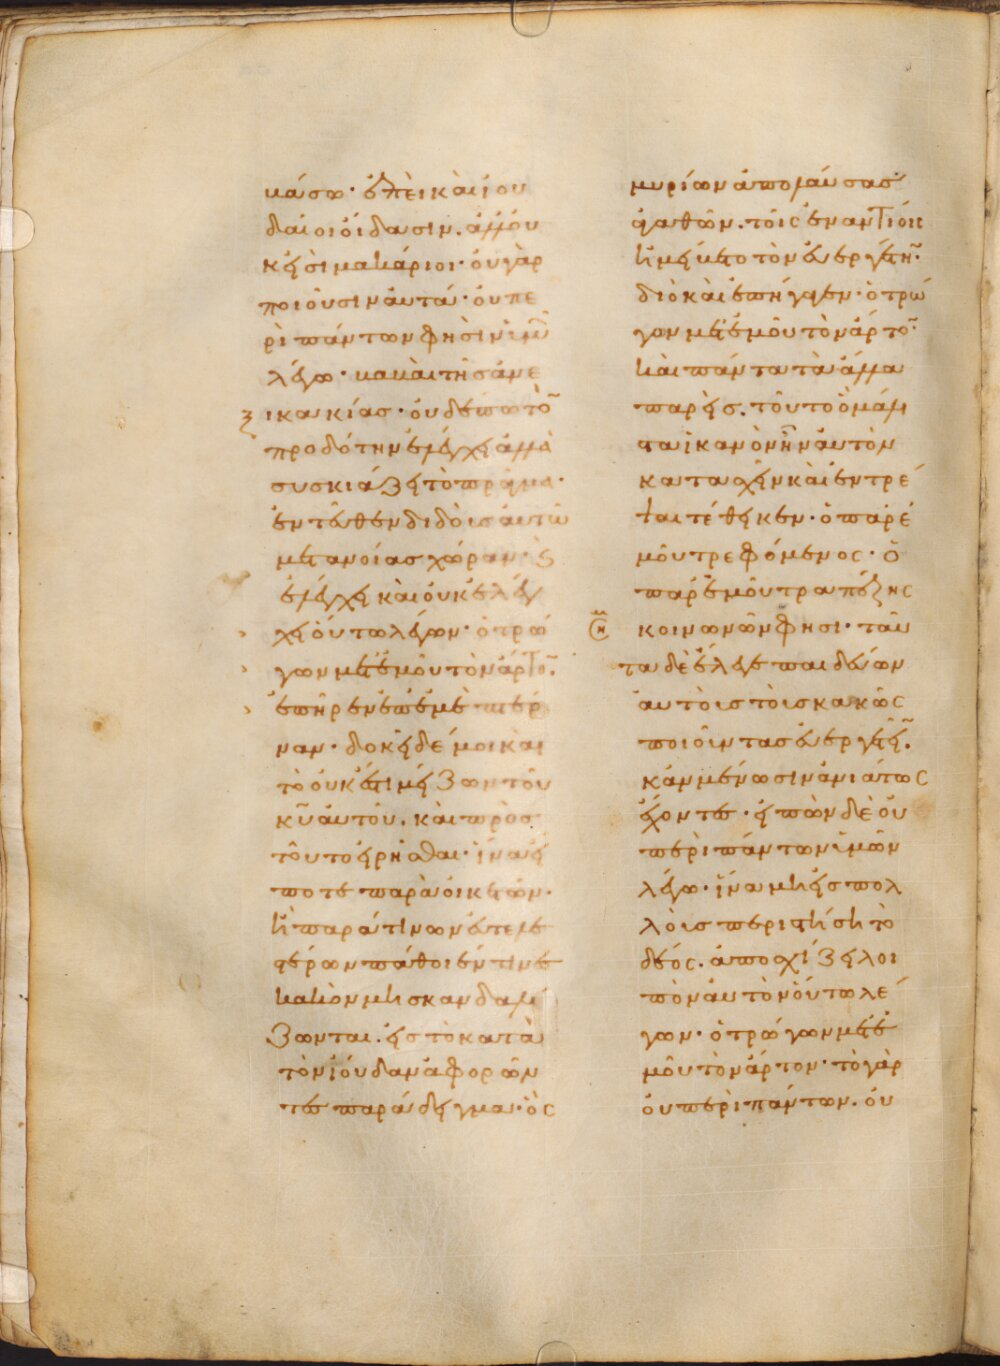 κάσω· ἐπεὶ καὶ ἰου
δαίοι οἴδασιν. ἀλλ' οὐ
κ εἰσὶ μακάριοι· οὐ γὰρ
ποιοῦσιν αὐτά· οὐ πε
ρὶ πάντων φησὶν ὑμῶν
λέγω· κακαὶ τῆς ἀνε
ικακίας· οὐδέπω τὸν
προδότην ἐλέγχει ἀλλὰ
συσκιάζει τὸ πρᾶγμα·
ἐντεῦθεν διδοὺς αὐτῶ
μετανοίας χώραν·
ἐλέγχει καὶ οὐκ ἐλέγ
χει οὕτω λέγων· ὁ τρώ
γων μετ' ἐμοῦ τὸν ἄρτον.
ἐπῆρεν ἐπ' ἐμὲ πτέρ
ναν· δοκεῖ δέ μοι καὶ
τὸ οὐκ ἔτι μείζων τοῦ
κυ αὐτοῦ. καὶ πρὸς
τοῦτο εἰρῆσθαι· ἵνα εἴ
ποτε παρὰ οἰκετῶν·
ἢ παρά τινων εὐτελε
στέρων πάθοιέν τινες
κακὸν μὴ σκανδαλί
ζωνται. εἰς τὸ κατὰ
τὸν ἰούδαν ἀφορῶν
τες παράδειγμα· ὃς
μυρίων ἀπολαύσας
ἀγαθῶν. τοῖς ἐναντίοις
ἠμείψατο τὸν εὐεργέτην·
διὸ καὶ ἐπήγαγεν· ὁ τρώ
γων μετ' ἐμοῦ τὸν ἄρτον·
καὶ πάντα τὰ ἄλλα
παρεὶς. τοῦτο ὃ μάλι
στα ἱκανὸν ἦν αὐτὸν
κατασχεῖν καὶ ἐντρέ
ψαι τέθεικεν· ὁ παρ' ἐ
μοῦ τρεφόμενος· ὁ
παρ' ἐμοῦ τραπέζης
κοινωνῶν φησι· ταῦ
τα δὲ ἔλεγε παιδεύων
αὐτοὺς τοὺς κακῶς
ποιοῦντας εὐεργετεῖν.
κἂν μένωσιν ἀνιάτως
ἔχοντες· εἰπὼν δὲ οὐ
περὶ πάντων ὑμῶν
λέγω· ἵνα μὴ εἰς πολ
λοὺς περιστήση τὸ
δέος. ἀποσχίζει λοι
πὸν αὐτὸν οὕτω λέ
γων· ὁ τρώγων μετ' ἐ
μοῦ τὸν ἄρτον· τὸ γὰρ
οὐ περὶ πάντων. οὐ